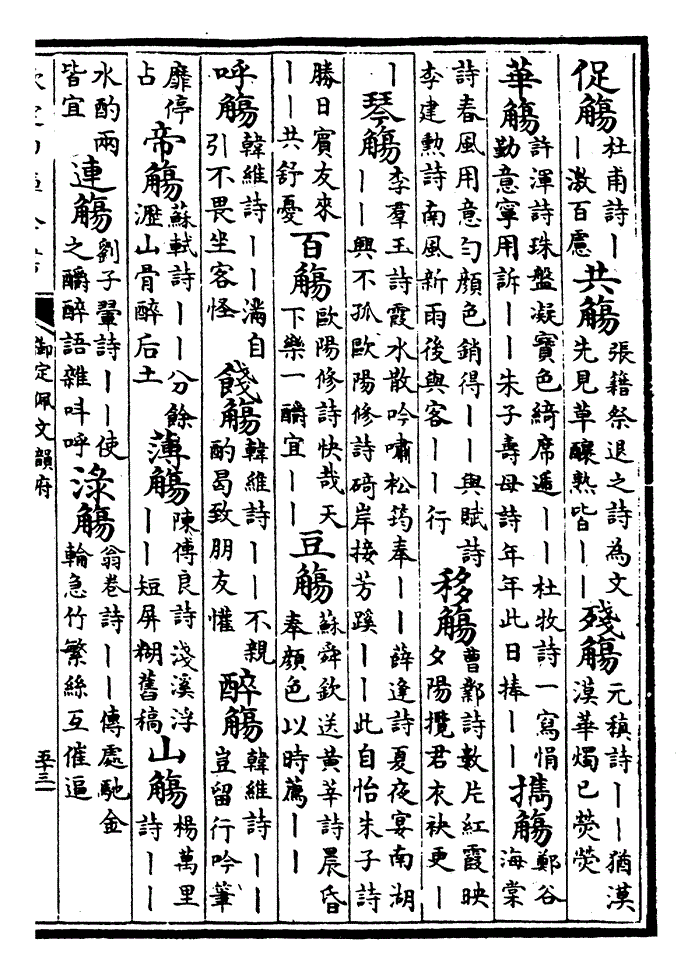 促觴杜甫詩丨丨激百慮共觴張籍祭退之詩為文先見草釀熟皆丨丨殘觴元稹詩丨丨猶漠漠華燭已熒熒
華觴許渾詩珠盤凝寶色綺席遞丨丨杜牧詩一寫悁勤意寧用訴丨丨朱子壽母詩年年此日捧丨丨擕觴鄭谷海棠
詩春風用意勻顏色銷得丨丨與賦詩李建勲詩南風新雨後與客丨丨行移觴曹鄴詩數片紅霞映夕陽攬君衣袂更丨
丨琴觴李羣玉詩霞水散吟嘯松筠奉丨丨薛逢詩夏夜宴南湖丨丨興不孤歐陽修詩碕岸接芳蹊丨丨此自怡朱子詩
勝日賓友來丨丨共舒憂百觴歐陽修詩快哉天下樂一釂宜丨丨豆觴蘇舜欽送黄莘詩晨昏奉顏色以時薦丨丨
呼觴韓維詩丨丨滿自引不畏坐客怪餞觴韓維詩丨丨不親酌曷致朋友懽醉觴韓維詩丨丨豈留行吟筆
靡停占帝觴蘇軾詩丨丨分餘瀝山骨醉后土薄觴陳傅良詩淺溪浮丨丨短屏糊舊稿山觴楊萬里詩丨丨
水酌兩皆宜連觴劉子翬詩丨丨使之釂醉語雜呌呼淥觴翁卷詩丨丨傳處馳金輪急竹繁絲互催逼
欽定四庫全書
御定佩文韻府
五十三